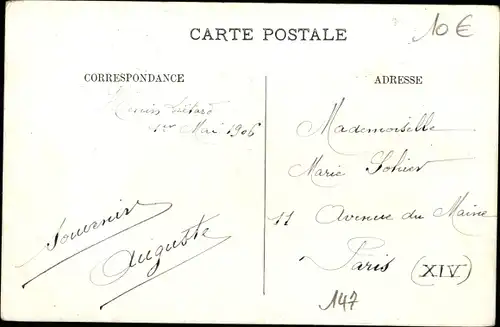 10€
CARTE POSTALE
CORRESPONDANCE
Liétard
1er Mai 1906
Souvenir
Auguste
ADRESSE
Mademoiselle
Marie Sohier
11 Avenue du Maine
Paris (XIV)
147